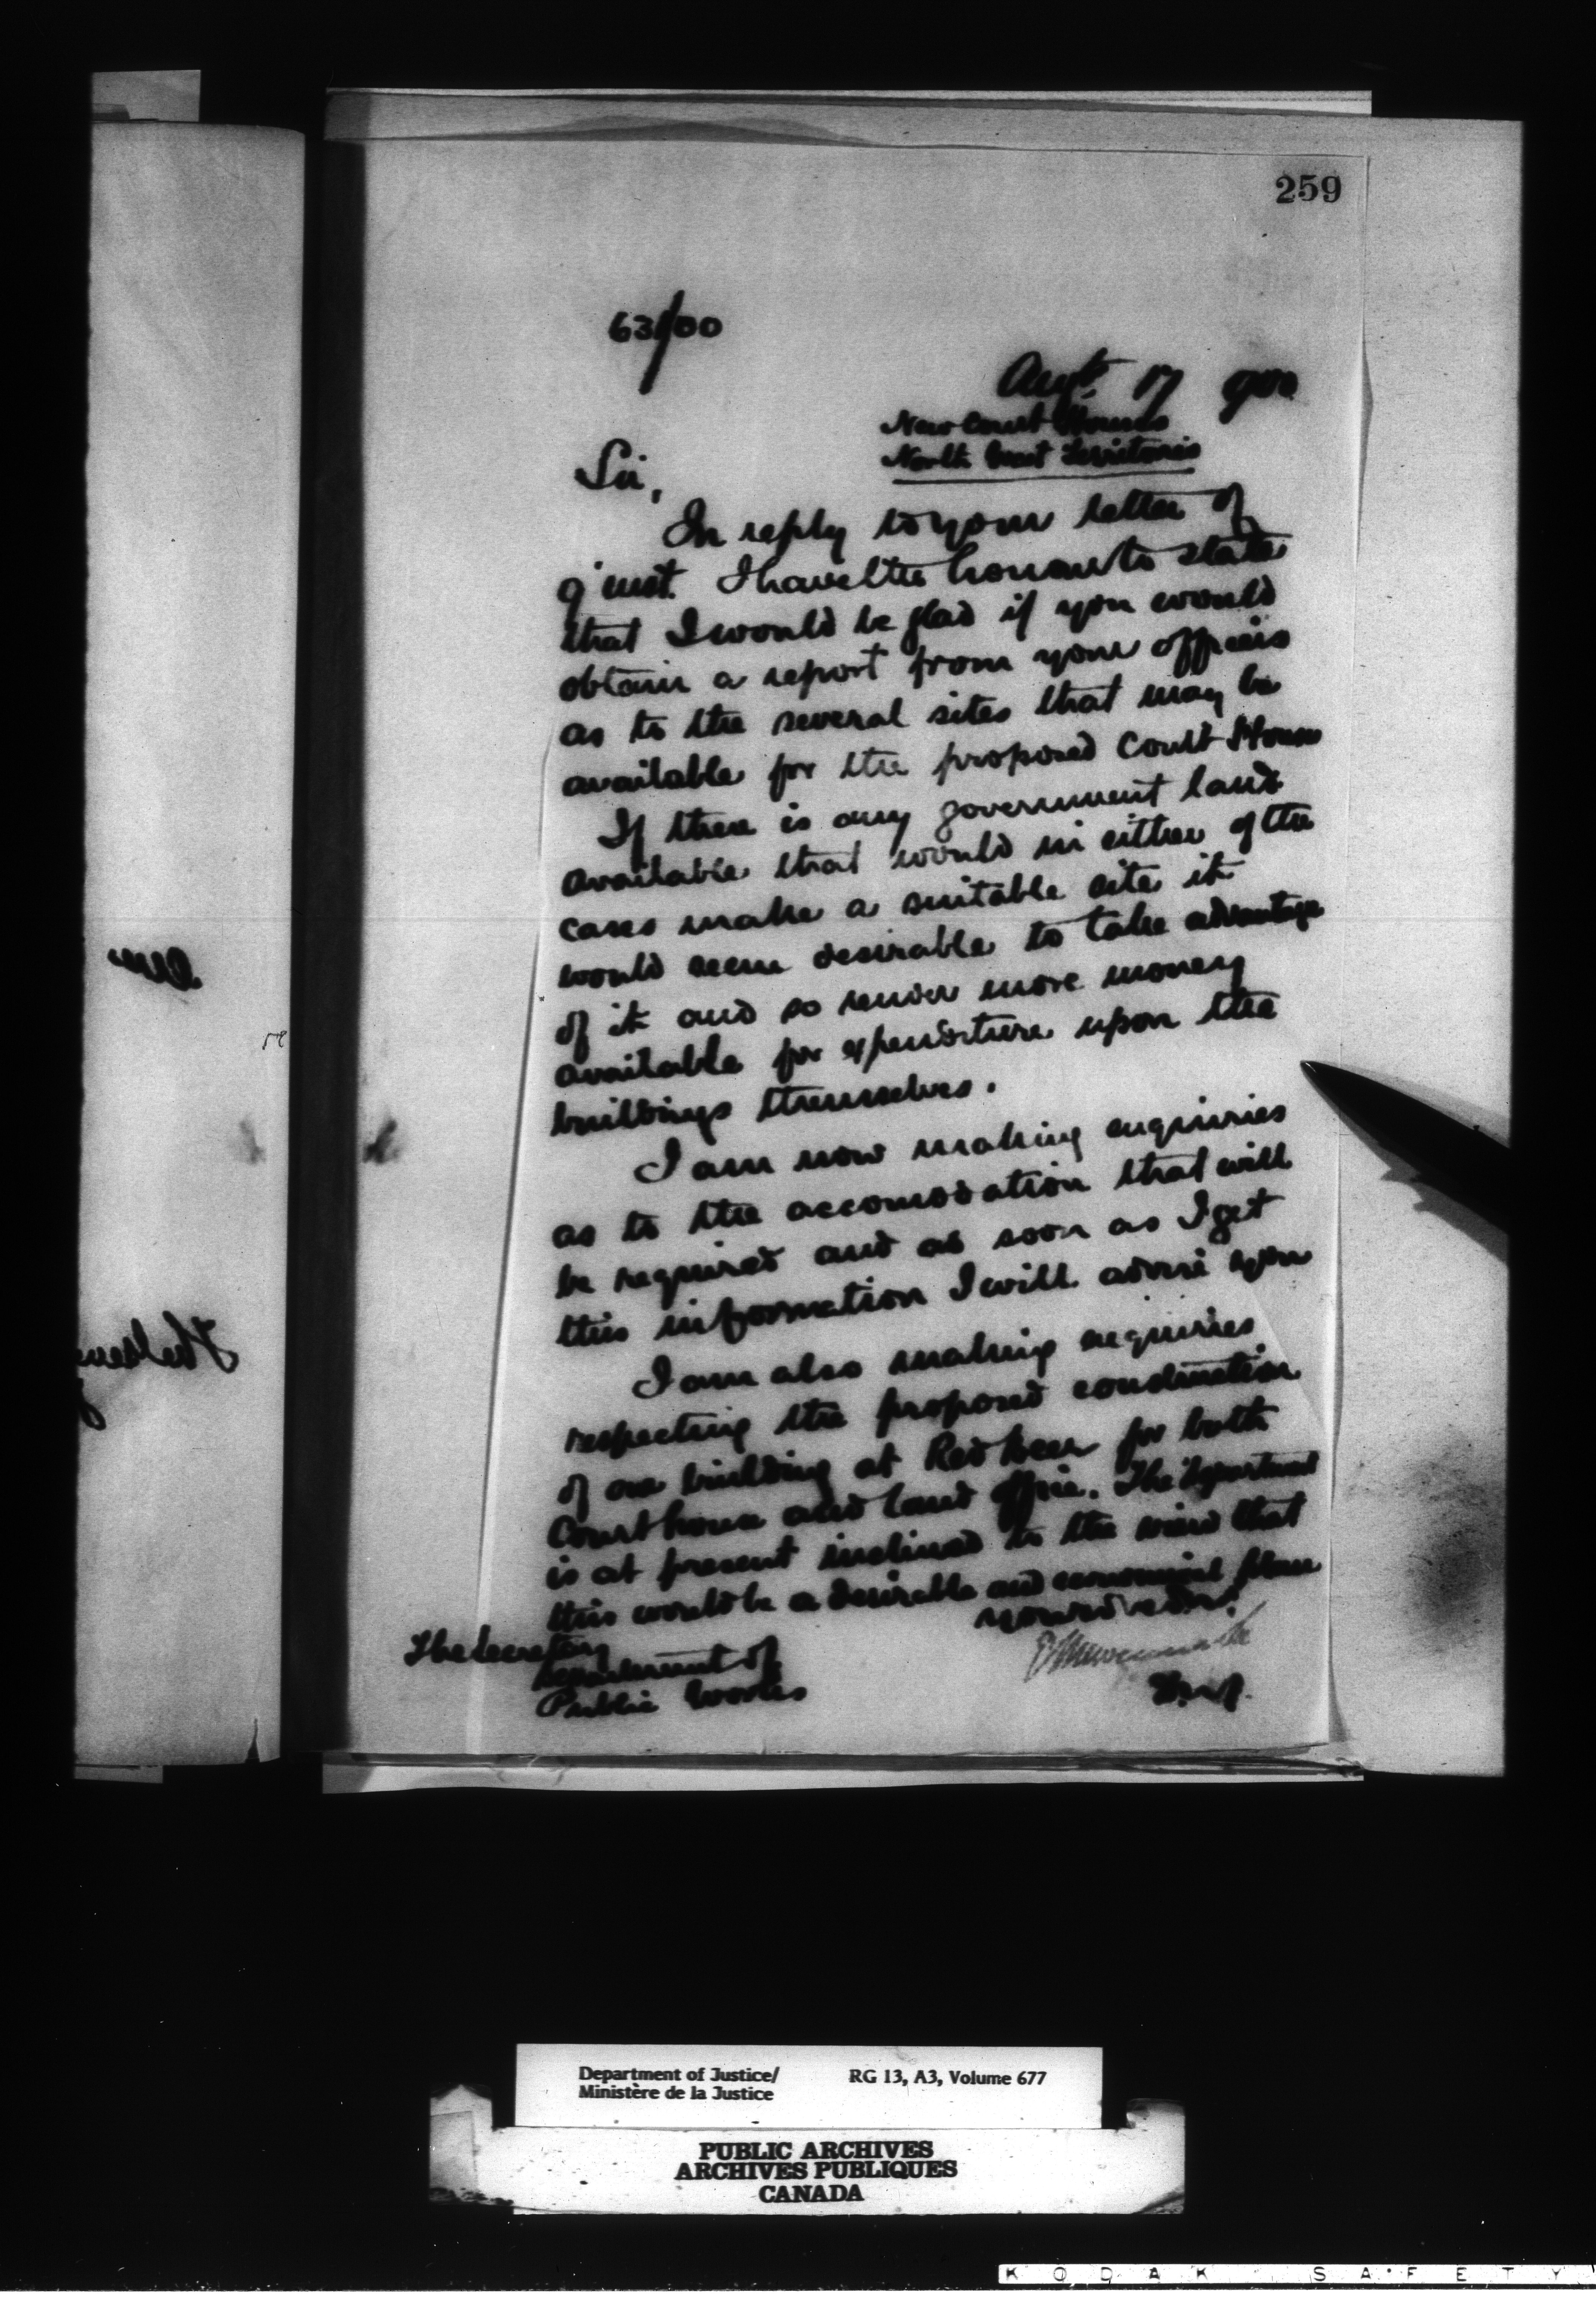 259
63/00
Augt. 17 900
New Court Houses
North West Territories
Sir,
In reply to your letter of
9' inst. I have the honour to state
that I would be glad if you would
obtain a report from your officers
as to the several sites that may be
available for the proposed Court Houses
If there is any government land
available that would in either of the
cases make a suitable site it
would seem desirable to take advantage
of it and so render more money
available for expenditure upon the
buildings themselves.
I am now making enquiries
as to the accomodation that will
be required and as soon as I get
this information I will advise you
I am also making enquiries
respecting the proposed construction
of one building at Red Deer for both
Court house and land office. The Department
is at present inclined to the view that
this would be a desirable and economical plan
The Secretary
Department of
Public Works
Department of Justice/
Ministère de la Justice
RG 13, A3, Volume 677
PUBLIC ARCHIVES
ARCHIVES PUBLIQUES
CANADA
KODAK SAFETY